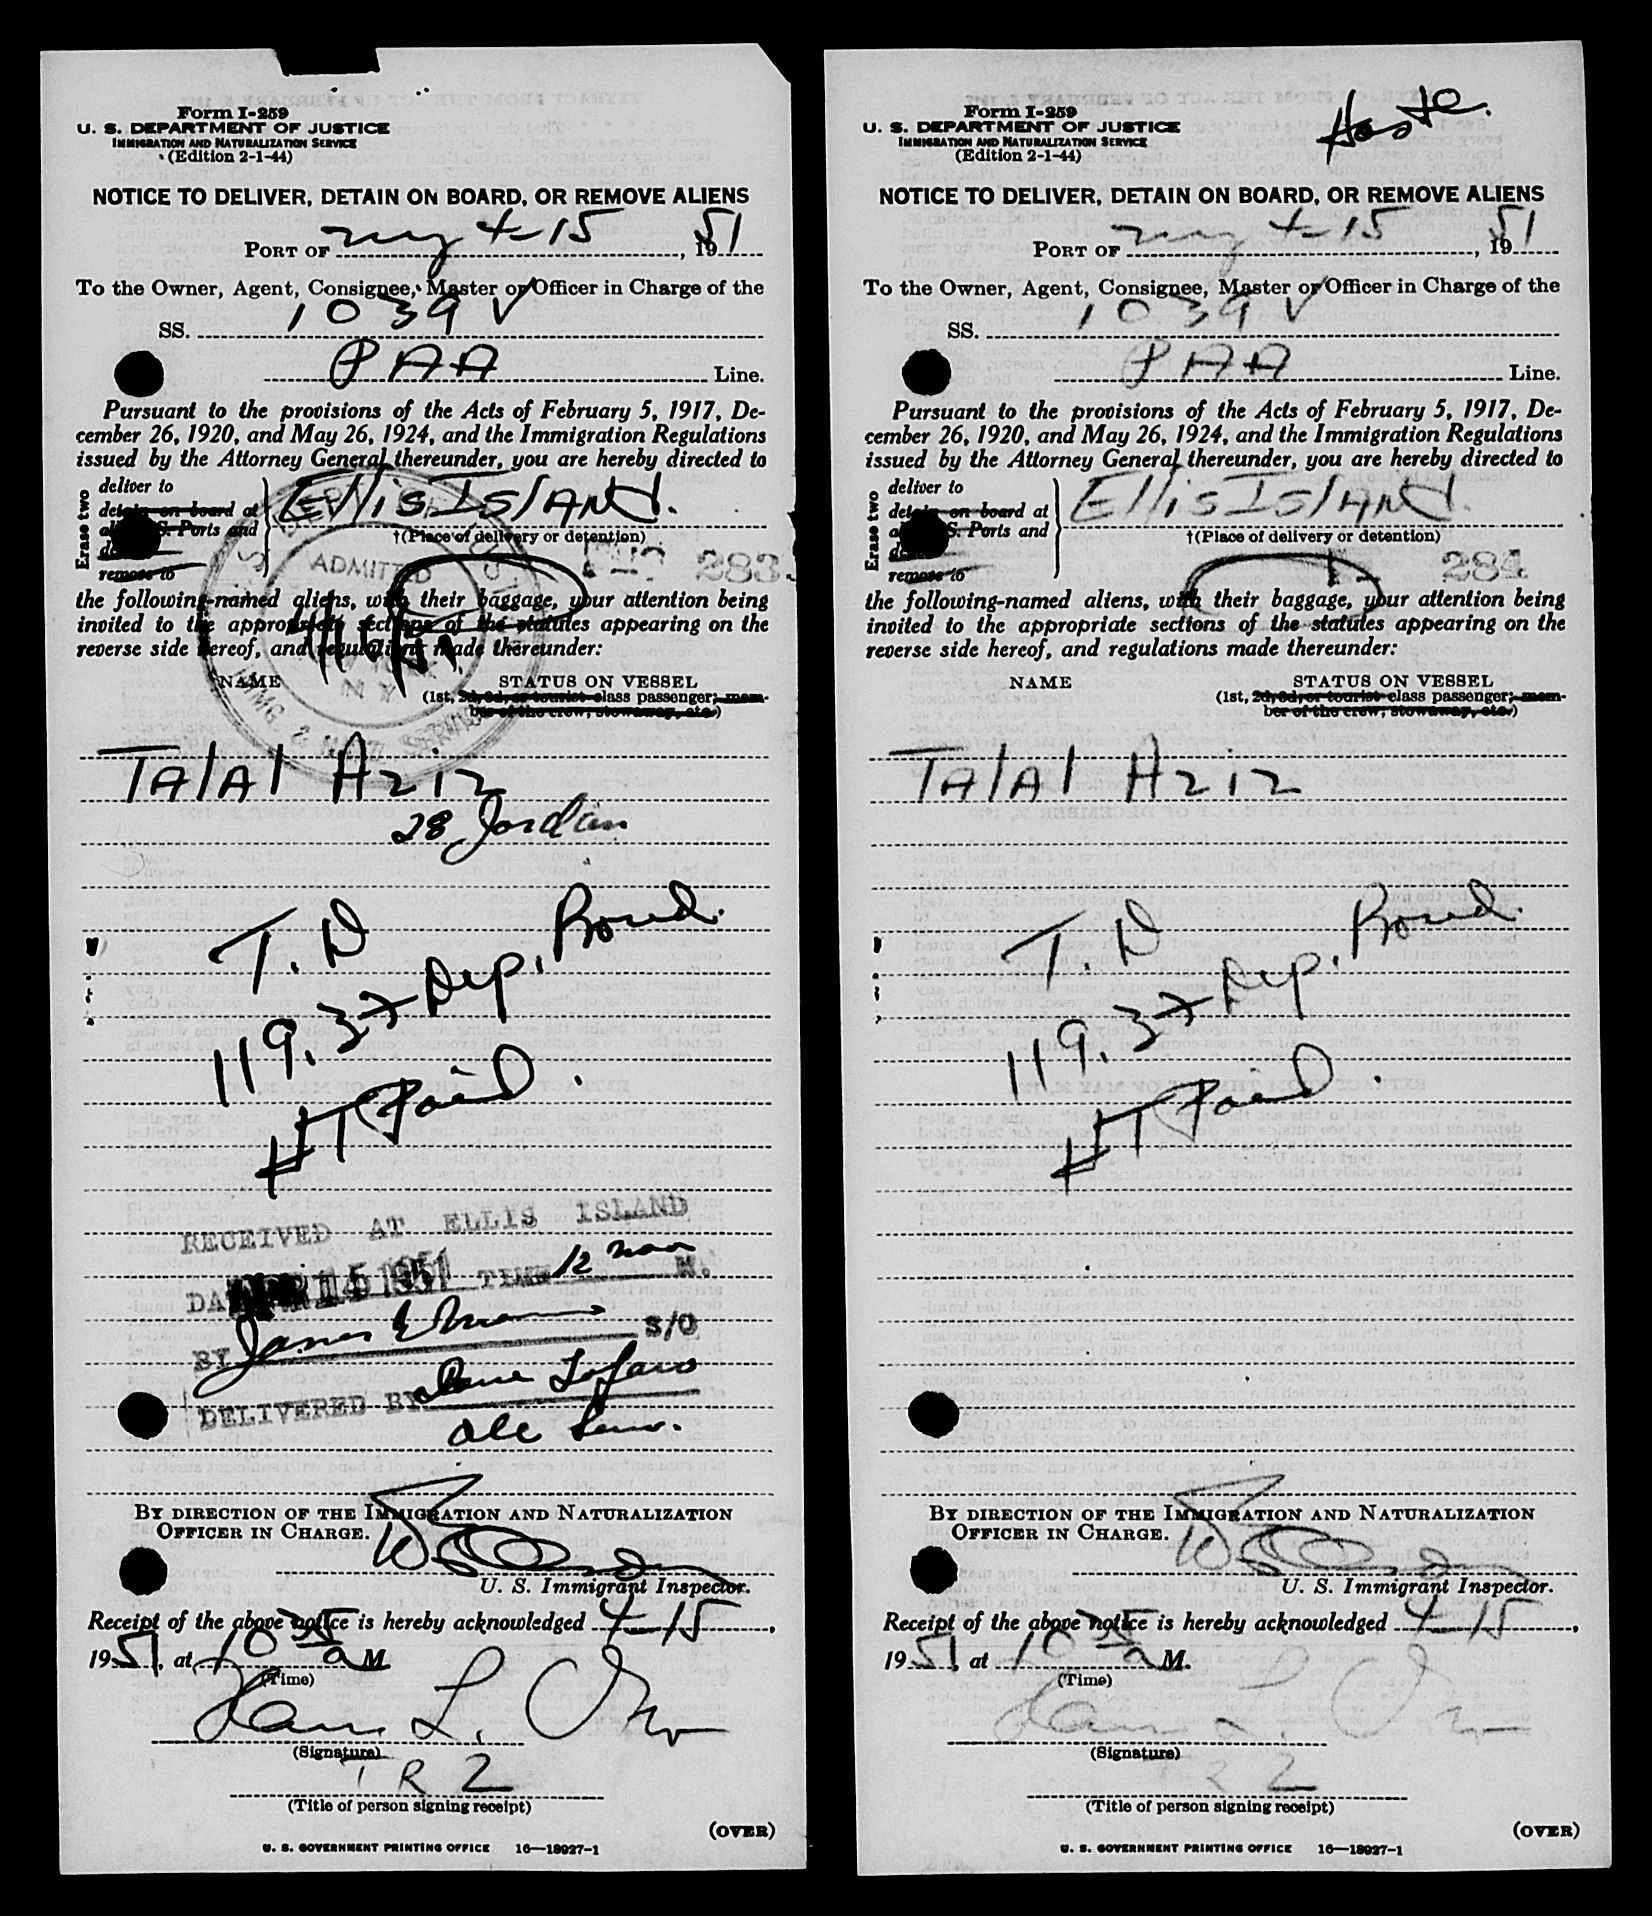 Form I-259
U. S. DEPARTMENT OF JUSTICE
IMMIGRATION AND NATURALIZATION SERVICE
(Edition 2-1-44)
NOTICE TO DELIVER, DETAIN ON BOARD, OR REMOVE ALIENS
PORT OF nyc 4-15, 1951
To the Owner, Agent, Consignee, Master or Officer in Charge of the
SS. 1039 V
PAA Line.
Pursuant to the provisions of the Acts of February 5, 1917, De-
cember 26, 1920, and May 26, 1924, and the Immigration Regulations
issued by the Attorney General thereunder, you are hereby directed to
Erase two
deliver to
detain on board at
all U. S. Ports and
remove to
Ellis Island.
†(Place of delivery or detention)
ADMITTED
283
the following-named aliens, with their baggage, your attention being
invited to the appropriate sections of the statutes appearing on the
reverse side hereof, and regulations made thereunder:
NAME
STATUS ON VESSEL
(1st, 2d, 3d, or tourist class passenger; mem-
ber of the crew, stowaway, etc.)
N.Y.
Talal Aziz
28 Jordan
T. D
119.37 Dep. Bond.
Paid.
RECEIVED AT ELLIS ISLAND
15 1951 TIME 12 noon M.
BY James S/O
DELIVERED BY
By DIRECTION OF THE IMMIGRATION AND NATURALIZATION
OFFICER IN CHARGE.
U. S. Immigrant Inspector.
Receipt of the above notice is hereby acknowledged 4-15,
1951, at 10 a M
(Time)
(Signature)
TR2
(Title of person signing receipt)
(OVER)
U. S. GOVERNMENT PRINTING OFFICE 16—18927-1
Form I-259
U. S. DEPARTMENT OF JUSTICE
IMMIGRATION AND NATURALIZATION SERVICE
(Edition 2-1-44)
NOTICE TO DELIVER, DETAIN ON BOARD, OR REMOVE ALIENS
PORT OF nyc 4-15, 1951
To the Owner, Agent, Consignee, Master or Officer in Charge of the
SS. 1039 V
PAA Line.
Pursuant to the provisions of the Acts of February 5, 1917, De-
cember 26, 1920, and May 26, 1924, and the Immigration Regulations
issued by the Attorney General thereunder, you are hereby directed to
Erase two
deliver to
detain on board at
all U. S. Ports and
remove to
Ellis Island.
†(Place of delivery or detention)
284
the following-named aliens, with their baggage, your attention being
invited to the appropriate sections of the statutes appearing on the
reverse side hereof, and regulations made thereunder:
NAME
STATUS ON VESSEL
(1st, 2d, 3d, or tourist class passenger; mem-
ber of the crew, stowaway, etc.)
Talal Aziz
T. D
119.37 Dep. Bond.
Paid.
By DIRECTION OF THE IMMIGRATION AND NATURALIZATION
OFFICER IN CHARGE.
U. S. Immigrant Inspector.
Receipt of the above notice is hereby acknowledged 4-15,
1951, at 10 a M.
(Time)
(Signature)
(Title of person signing receipt)
(OVER)
U. S. GOVERNMENT PRINTING OFFICE 16—18927-1